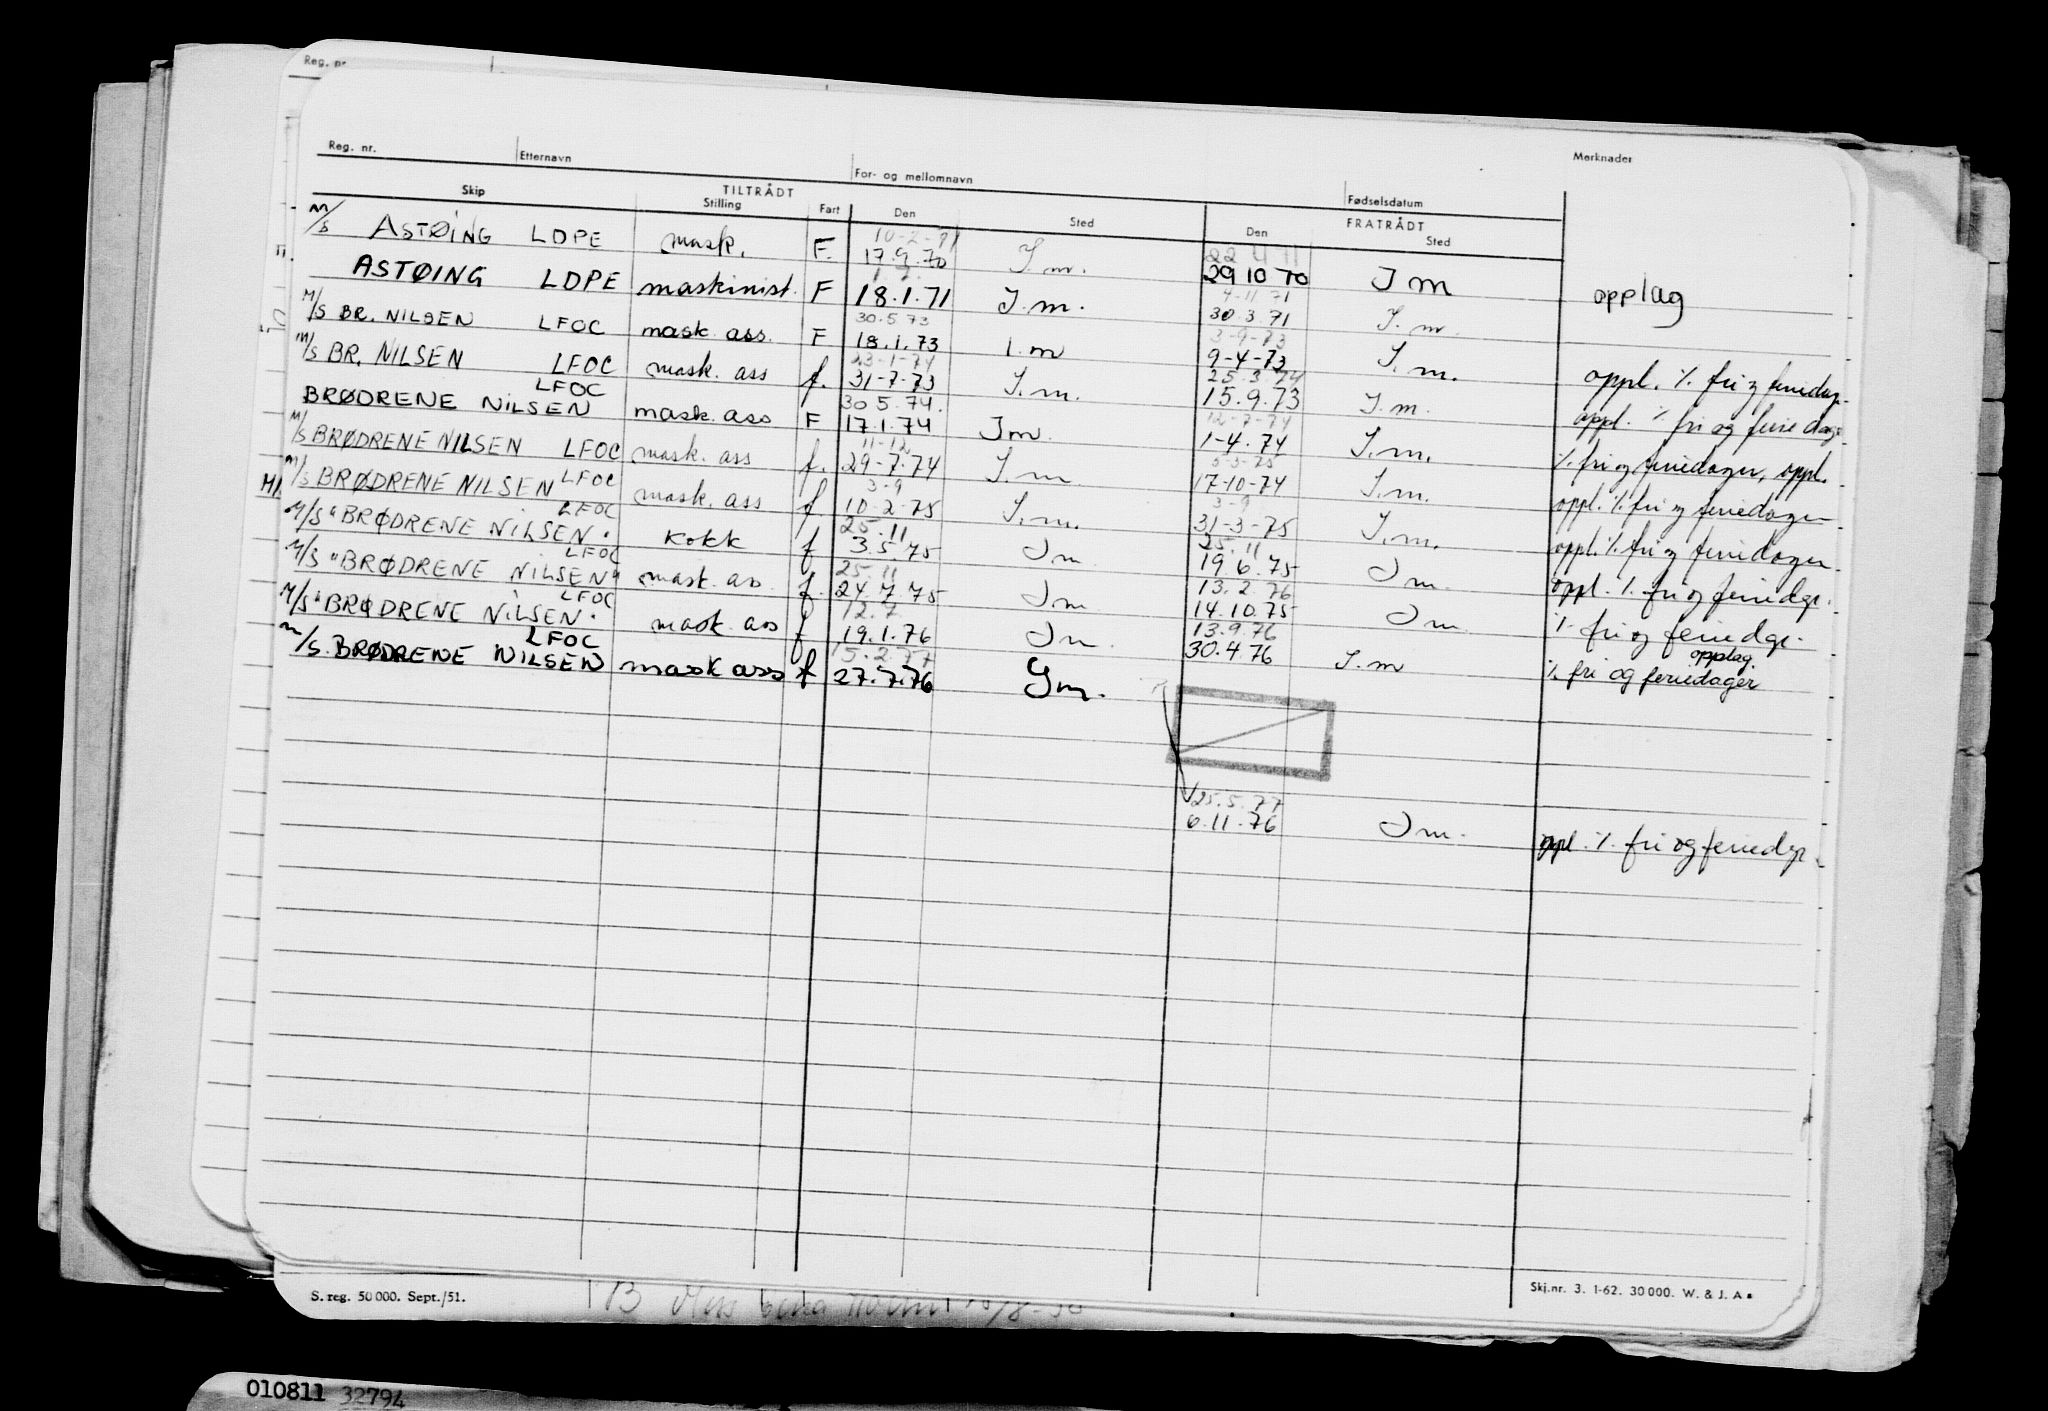 Reg. nr.
Reg. nr. Etternavn For- og mellomnavn Fødselsdatum Merknader
TILTRÅDT FRATRÅDT
Skip Stilling Fart Den Sted Den Sted
10-2-71 22 4 71
M/S ASTØING LDPE mask. F. 17.9.70 I.m. 29 10 70 I m opplag
4-11 71
ASTØING LDPE maskinist. F 18.1.71 I.m. 30.3.71 I.m.
30.5.73 3-9-73
M/S BR. NILSEN LFOC mask ass. F 18.1.73 I.m 9-4-73 I.m. oppl. % fri og feriedag.
23-1-74 25.3.74
M/S BR. NILSEN LFOC mask. ass f. 31-7-73 I.m. 15.9.73 I.m. oppl. % fri og feriedage
30 5.74. 12-7-74
BRØDRENE NILSEN LFOC mask. ass F 17.1.74 Im. 1-4.74 I.m. % fri og feriedager, oppl.
11-12 5-3-75
M/S BRØDRENE NILSEN LFOC mask. ass f. 29-7.74 I.m. 17-10-74 I.m. oppl. % fri og feriedager
3-9 3-9
M/S BRØDRENE NILSEN LFOC mask. ass f 10-2-75 I.m. 31-3-75 I.m. oppl. % fri og feriedager
25.11 25.11
M/S "BRØDRENE NILSEN" LFOC kokk f 3.5.75 Im 19.6.75 Im. oppl. % fri og feriedgr.
25.11 13.2.76
M/S "BRØDRENE NILSEN" LFOC mask. ass f. 24.7.75 Im 14.10.75 Im. % fri og feriedgr.
12.7 13.9.76
M/S "BRØDRENE NILSEN" LFOC mask. ass f 19.1.76 Im. 30.4.76 I.m % fri og feriedager opplag.
15.2.77
M/S. BRØDRENE NILSEN LFOC mask ass f 27.7.76 Im.
25.5.77
6.11.76 Im. oppl. % fri og feriedgr.
S. reg. 50 000. Sept./51. B Skj.nr. 3. 1-62. 30 000. W. & J. A s
010811 32794